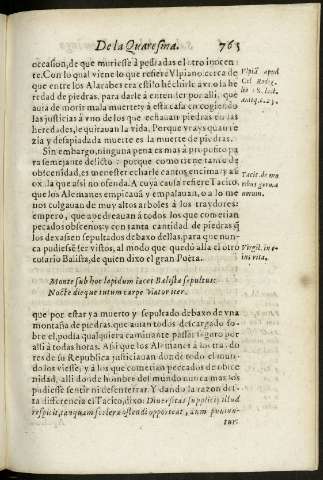 De la Quaresma. 763
ocasion, de que muriesse à pedradas el otro inocen
te. Con lo qual viene lo que refiere Vlpiano cerca de
que entre los Alarabes era estilo hechar le à vno la he
redad de piedras, para darle à entender por alli, que
auia de morir mala muerte; y à esta casa en cogiendo
las justicias à vno de los que echauan piedras en las
heredades, le quitauan la vida. Porque
zia y desapiadada muerte es la muerte de piedras.
Sin embargo, ninguna pena es mas à proposito pa
ra semejante delicto: porque como tiene tanto de
obscenidad, es menester echarle cantos encima; y aũ
la que assi no ofenda. A cuya causa refiere Tacito,
que los Alemanes empicauã, y empalauan, o a lo me
nos colgauan de muy altos arboles à los traydores:
empero, que apedreauan à todos los que cometian
pecados obscenos: y con tanta cantidad de piedras q̃
los dexassen sepultados debaxo dellas, para que nun-
ca pudiessẽ ser vistos, al modo que quedò alla el otro
Balista, de quien dixo el gran Poëta.
Monte sub hoc lapidum iacet Balista sepultus:
Nocte dieque tutum carpe viator iter.
que por estar ya muerto y sepultado debaxo de vna
montaña de piedras, que auian todos descargado so-
bre el, podia qualquiera caminante passar seguro por
alli à todas horas. Assi que los Alemanes à los traydo
res de su Republica justiciauan donde todo el mun-
do los viesse; y à los que cometian pecados de obsce
nidad, alli donde hombre del mundo nunca mas los
pudiesse sentir ni desenterrar. Y dando la razon des-
ta differencia el Tacito, dixo: Diuersitas supplicij illud
respicit, tanquam scelera ostendi oporteat, dum puniun-
tur,
Vlpiã apud
Cel Rodig.
Tacit. de mo
ribus germa
norum.
Virgil. in e-
ius vita.